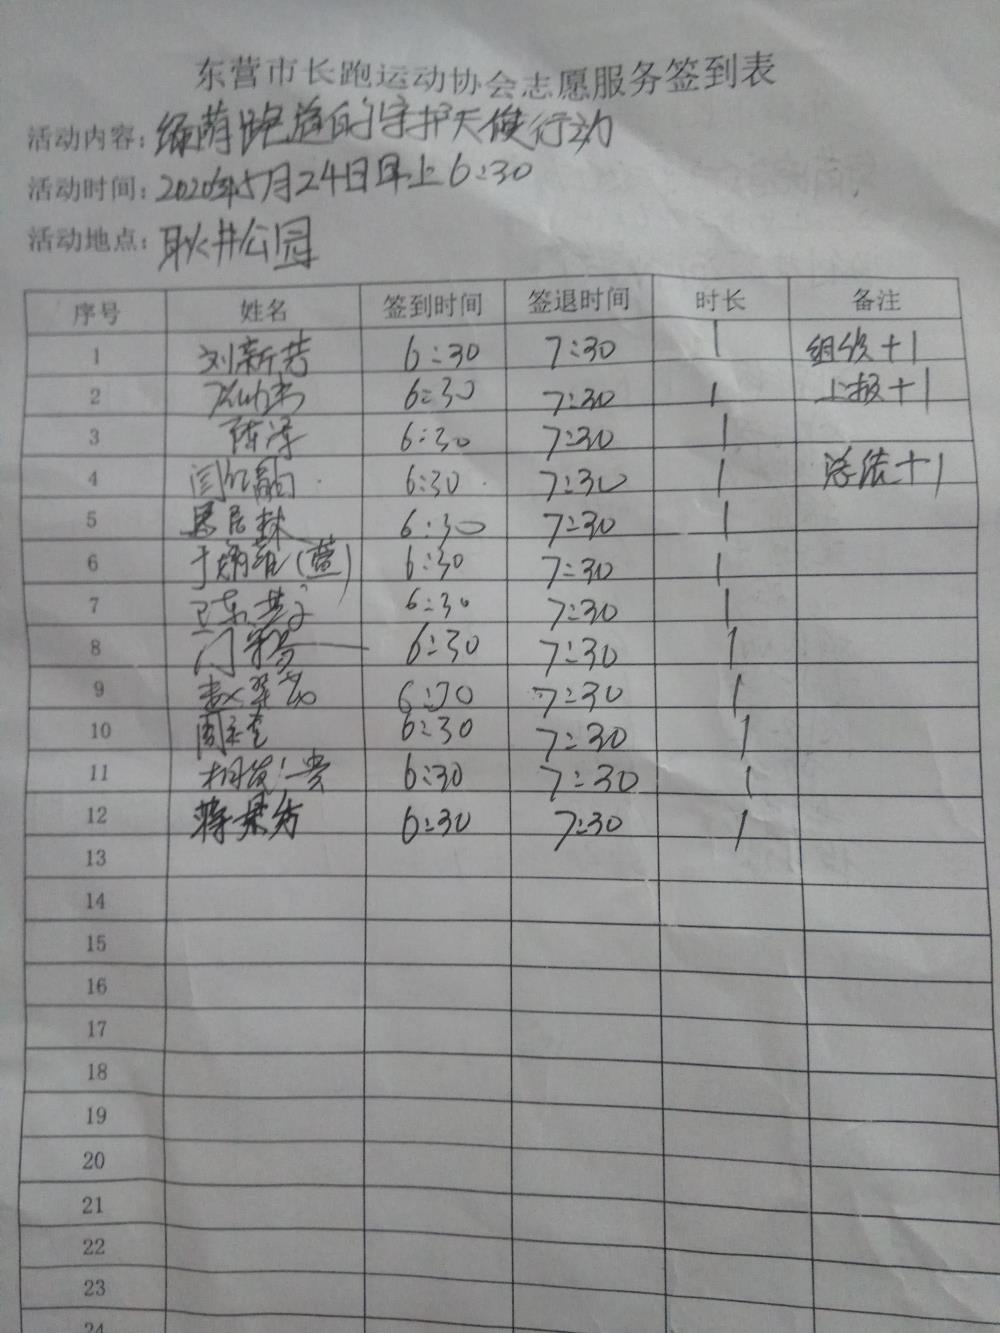 东营市长跑运动协会志愿服务签到表
活动内容:绿荫跑道的守护天使行动
活动时间:2020年5月24日早上6:30
活动地点:耿井公园
序号 姓名 签到时间 签退时间 时长 备注
1 刘新芳 6:30 7:30 1 组织+1
2 6:30 7:30 1 上报+1
3 陈泽 6:30 7:30 1
4 6:30 7:30 1 总结+1
5 6:30 7:30 1
6 6:30 7:30 1
7 6:30 7:30 1
8 6:30 7:30 1
9 赵翠芳 6:30 7:30 1
10 6:30 7:30 1
11 6:30 7:30 1
12 蒋景芳 6:30 7:30 1
13
14
15
16
17
18
19
20
21
22
23
24